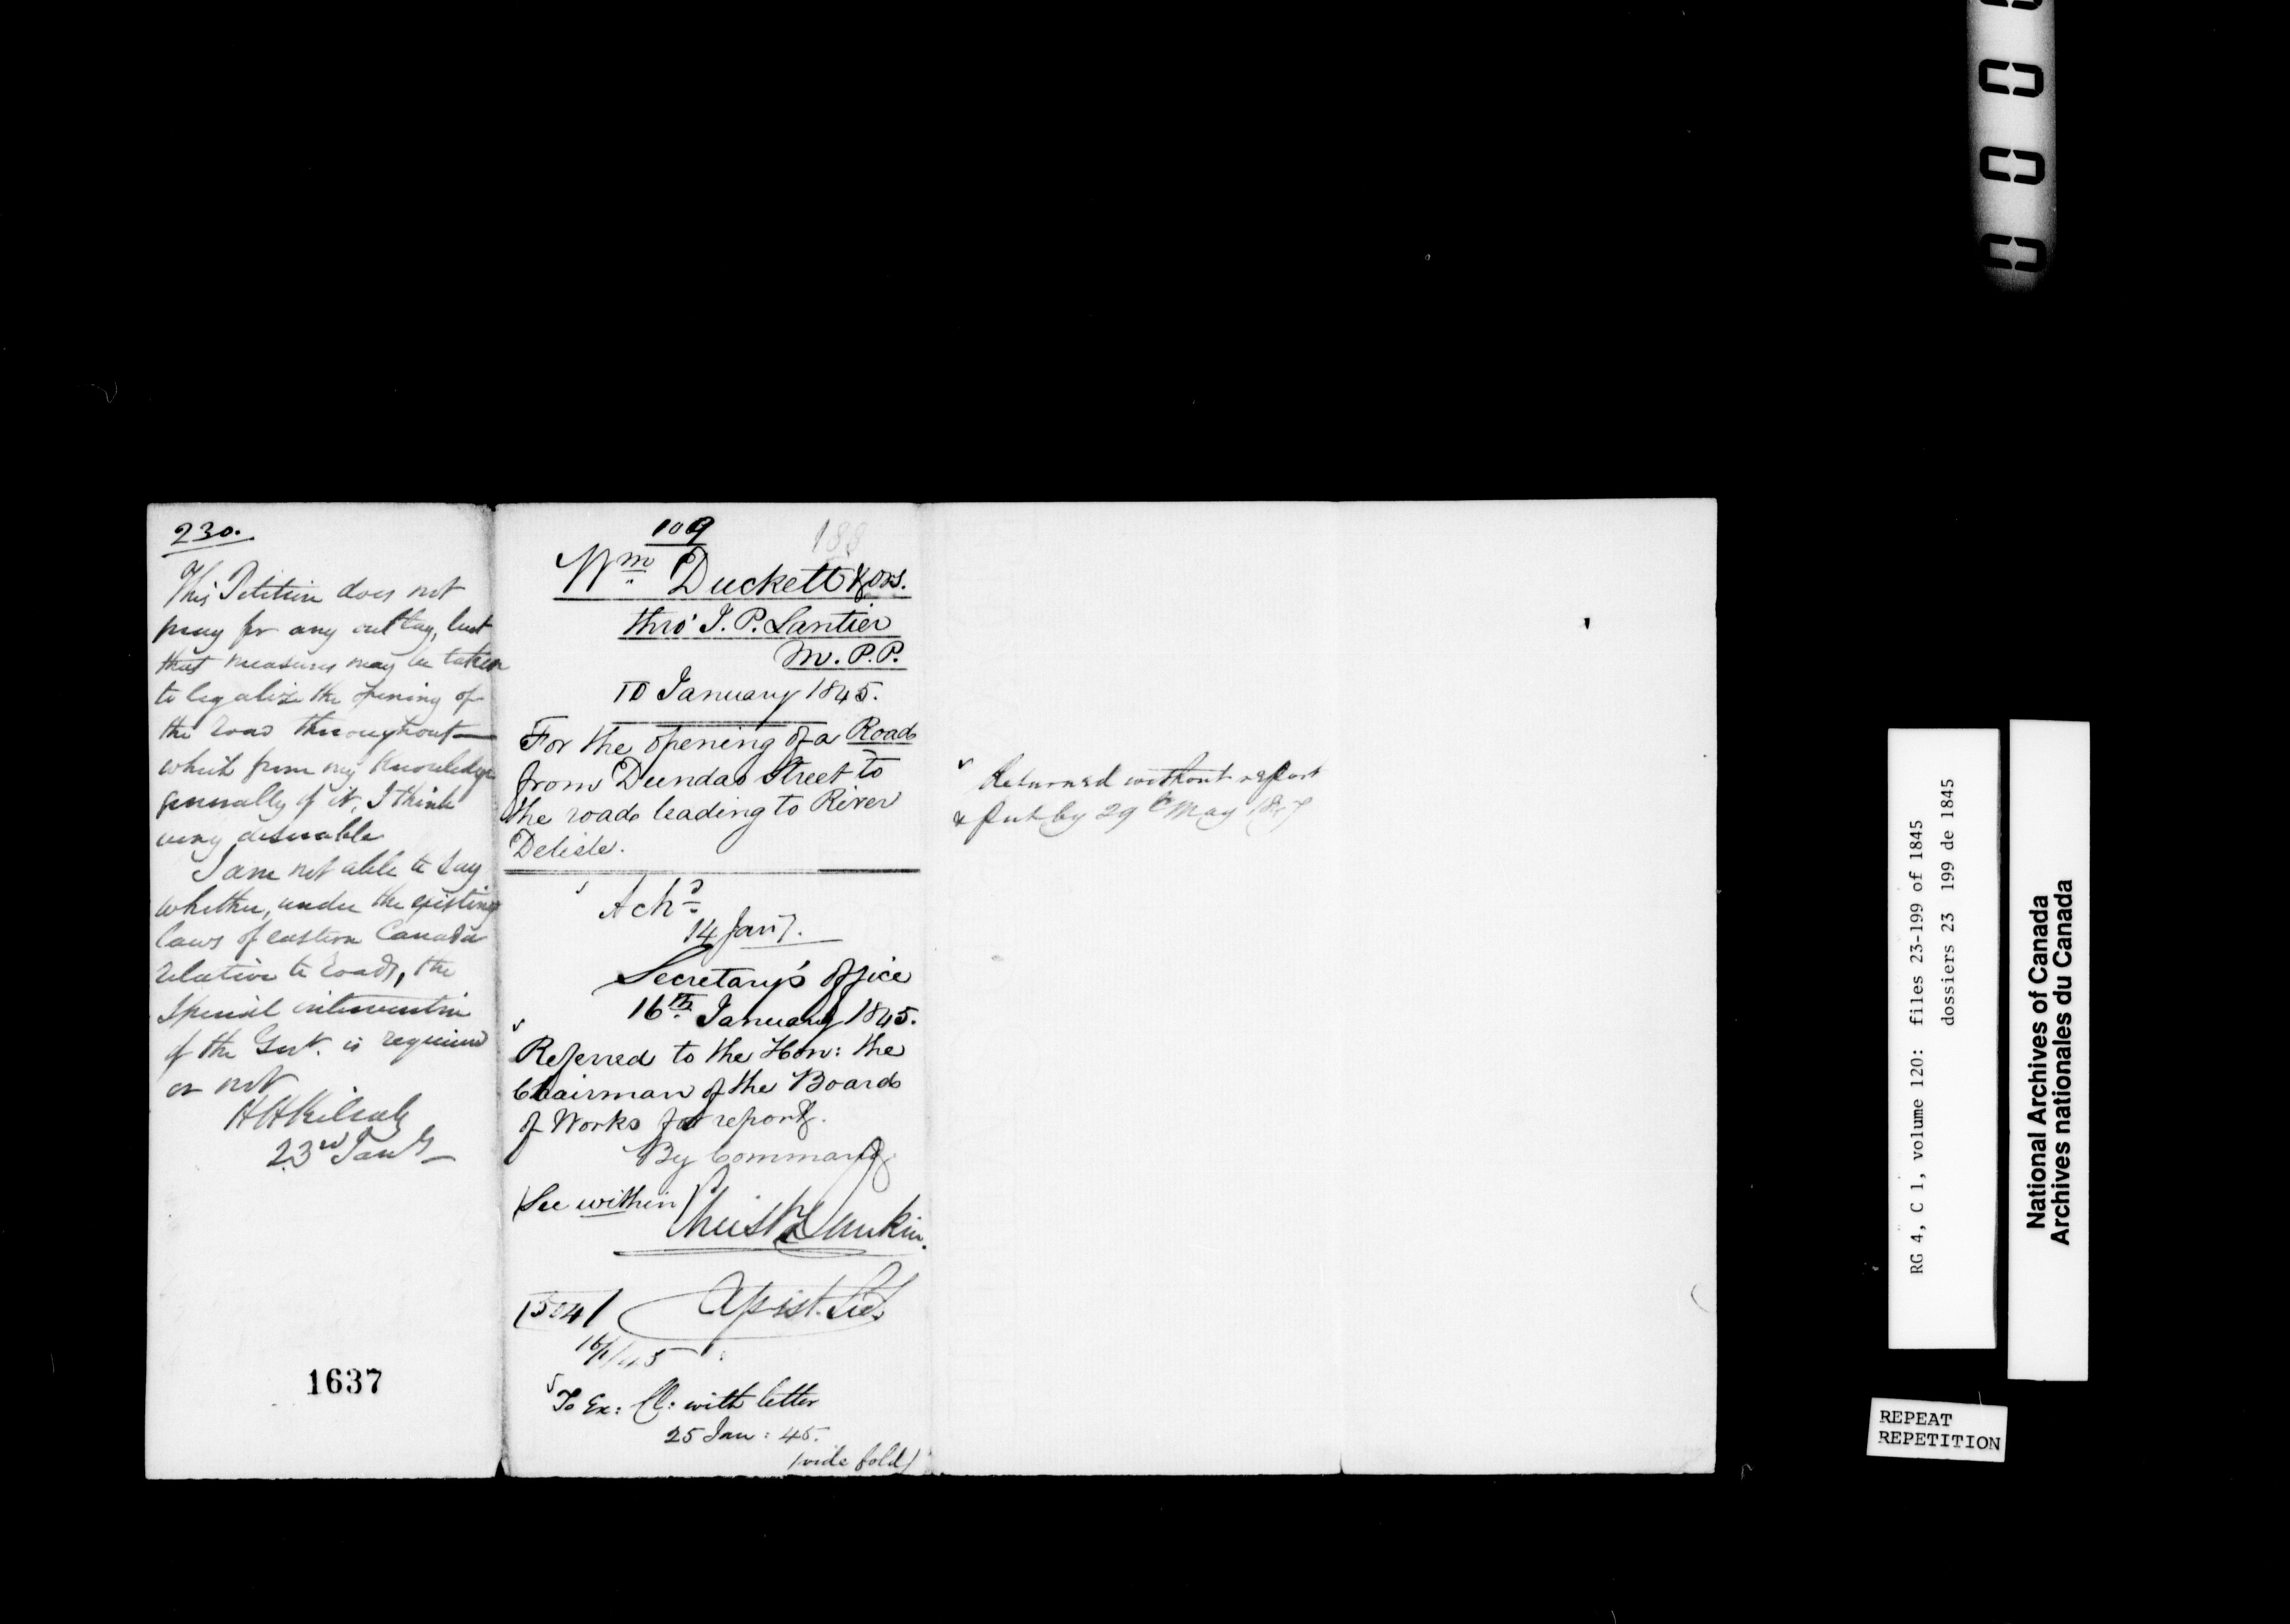 230.
This Petition does not
pray for any outlay, but
that measures may be taken
to legalize the opening of
the road throughout—
which from my knowledge
generally of it, I think
very desirable
I am not able to say
whether, under the existing
laws of eastern Canada
relative to roads, the
special intervention
of the Govt. is required
or not
HHKillaly
23rd Jany
1637
109
188
Wm Duckett & ors.
thro' J. P. Lantier
M. P. P.
10 January 1845.
For the opening of a Road
from Dundas Street to
the road leading to River
Delisle.
Ackd
14 Jany.
Secretary's office
16th January 1845.
Referred to the Hon: the
Chairman of the Board
of Works for report.
By Command
(See within)
Christ Dunkin.
Assist. Secy
1504/
16/1/45
To Ex: Cl: with letter
25 Jan: 45.
(vide fold)
Returned without report
& put by 29th May 1847
RG 4, C 1, volume 120: files 23-199 of 1845
dossiers 23 199 de 1845
National Archives of Canada
Archives nationales du Canada
REPEAT
REPETITION
0 0 0 0